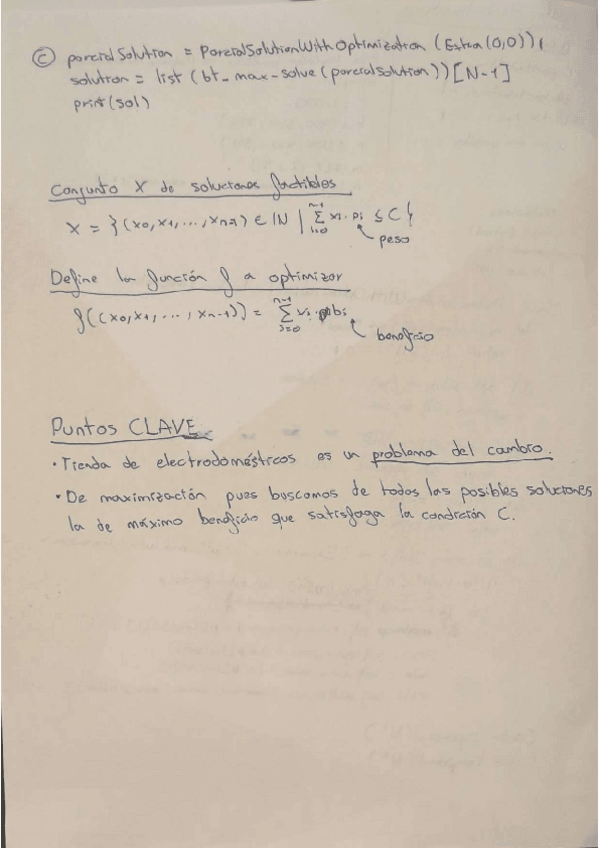 c) parcialSolution = ParcialSolutionWithOptimization (Extra(0,0)),
solution = list (bt_max_solve (parcialSolution)) [N-1]
print(sol)
Conjunto X de soluciones factibles
X = {(x0, x1, ..., xn-1) ∈ IN | n-1 Σ i=0 xi · pi ≤ C}
peso
Define la función f a optimizar
f((x0, x1, ..., xn-1)) = n-1 Σ i=0 xi · bi
beneficio
Puntos CLAVE
· Tienda de electrodomésticos es un problema del cambio.
· De maximización pues buscamos de todas las posibles soluciones
la de máximo beneficio que satisfaga la condición C.